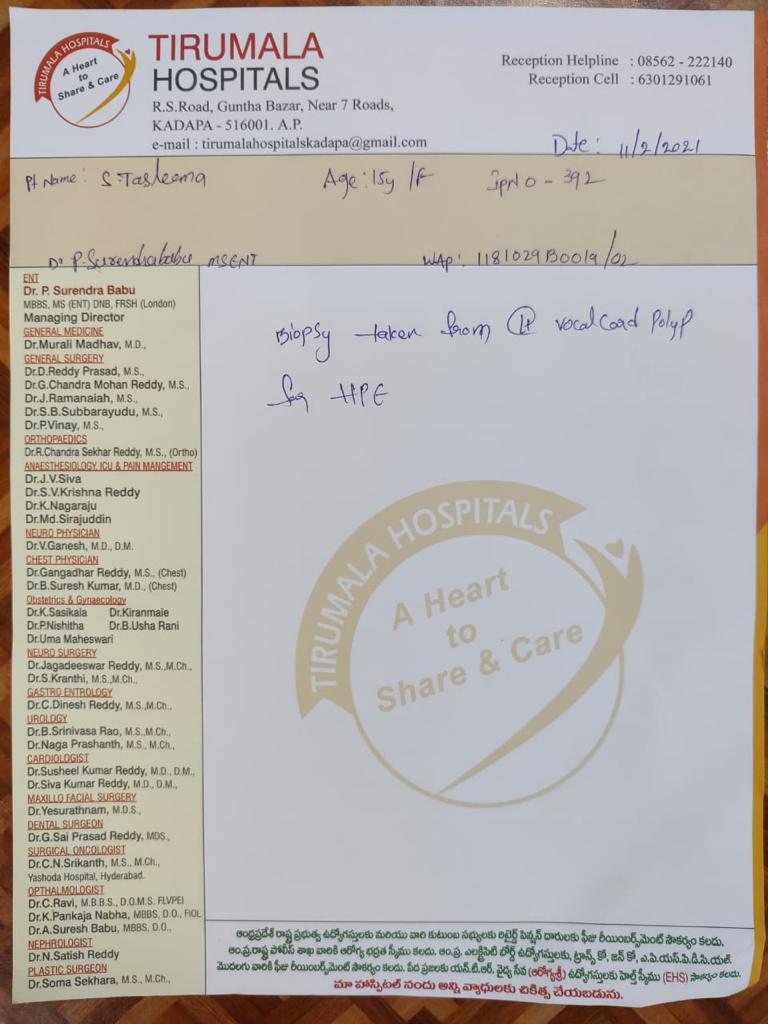 TIRUMALA HOSPITALS
A Heart
to
Share & Care
TIRUMALA
HOSPITALS
R.S.Road, Guntha Bazar, Near 7 Roads,
KADAPA - 516001. A.P.
e-mail : tirumalahospitalskadapa@gmail.com
Reception Helpline : 08562 - 222140
Reception Cell : 6301291061
Date: 11/2/2021
Pt Name: S.Tasleema Age: 15y /F IpNo - 392
Dr P.Surendrababu MSENT WAP: 1181029B0019/02
ENT
Dr. P. Surendra Babu
MBBS, MS (ENT) DNB, FRSH (London)
Managing Director
GENERAL MEDICINE
Dr.Murali Madhav, M.D.,
GENERAL SURGERY
Dr.D.Reddy Prasad, M.S.,
Dr.G.Chandra Mohan Reddy, M.S.,
Dr.J.Ramanaiah, M.S.,
Dr.S.B.Subbarayudu, M.S.,
Dr.P.Vinay, M.S.,
ORTHOPAEDICS
Dr.R.Chandra Sekhar Reddy, M.S., (Ortho)
ANAESTHESIOLOGY, ICU & PAIN MANGEMENT
Dr.J.V.Siva
Dr.S.V.Krishna Reddy
Dr.K.Nagaraju
Dr.Md.Sirajuddin
NEURO PHYSICIAN
Dr.V.Ganesh, M.D., D.M.
CHEST PHYSICIAN
Dr.Gangadhar Reddy, M.S., (Chest)
Dr.B.Suresh Kumar, M.D., (Chest)
Obstetrics & Gynaecology
Dr.K.Sasikala Dr.Kiranmaie
Dr.P.Nishitha Dr.B.Usha Rani
Dr.Uma Maheswari
NEURO SURGERY
Dr.Jagadeeswar Reddy, M.S.,M.Ch.,
Dr.S.Kranthi, M.S.,M.Ch.,
GASTRO ENTROLOGY
Dr.C.Dinesh Reddy, M.S.,M.Ch.,
UROLOGY
Dr.B.Srinivasa Rao, M.S.,M.Ch.,
Dr.Naga Prashanth, M.S., M.Ch.,
CARDIOLOGIST
Dr.Susheel Kumar Reddy, M.D., D.M.,
Dr.Siva Kumar Reddy, M.D., D.M.,
MAXILLO FACIAL SURGERY
Dr.Yesurathnam, M.D.S.,
DENTAL SURGEON
Dr.G.Sai Prasad Reddy, MDS.,
SURGICAL ONCOLOGIST
Dr.C.N.Srikanth, M.S., M.Ch.,
Yashoda Hospital, Hyderabad.
OPTHALMOLOGIST
Dr.C.Ravi, M.B.B.S., D.O.M.S. FLVPEI
Dr.K.Pankaja Nabha, MBBS, D.O., FIOL
Dr.A.Suresh Babu, MBBS, D.O.,
NEPHROLOGIST
Dr.N.Satish Reddy
PLASTIC SURGEON
Dr.Soma Sekhara, M.S., M.Ch.,
Biopsy taken from Lt vocalcoad polyp
for HPE
TIRUMALA HOSPITALS
A Heart
to
Share & Care
ఆంధ్రప్రదేశ్ రాష్ట్ర ప్రభుత్వ ఉద్యోగస్తులకు మరియు వారి కుటుంబ సభ్యులకు రిటైర్డ్ పెన్షన్ దారులకు ఫీజు రీయింబర్స్‌మెంట్ సౌకర్యం కలదు.
ఆం.ప్ర.రాష్ట్ర పోలీస్ శాఖ వారికి ఆరోగ్య భద్రత స్కీము కలదు. ఆం.ప్ర. ఎలక్ట్రిసిటి బోర్డ్ ఉద్యోగస్తులకు, ట్రాన్స్ కో, జన్ కో, ఎ.పి.యస్.పి.డి.సి.యల్.
మొదలగు వారికి ఫీజు రీయింబర్స్‌మెంట్ సౌకర్యం కలదు. పేద ప్రజలకు యన్.టి.ఆర్. వైద్య సేవ (ఆరోగ్యశ్రీ) ఉద్యోగస్తులకు హెల్త్ స్కీము (EHS) సౌకర్యం కలదు.
మా హాస్పిటల్ నందు అన్ని వ్యాధులకు చికిత్స చేయబడును.